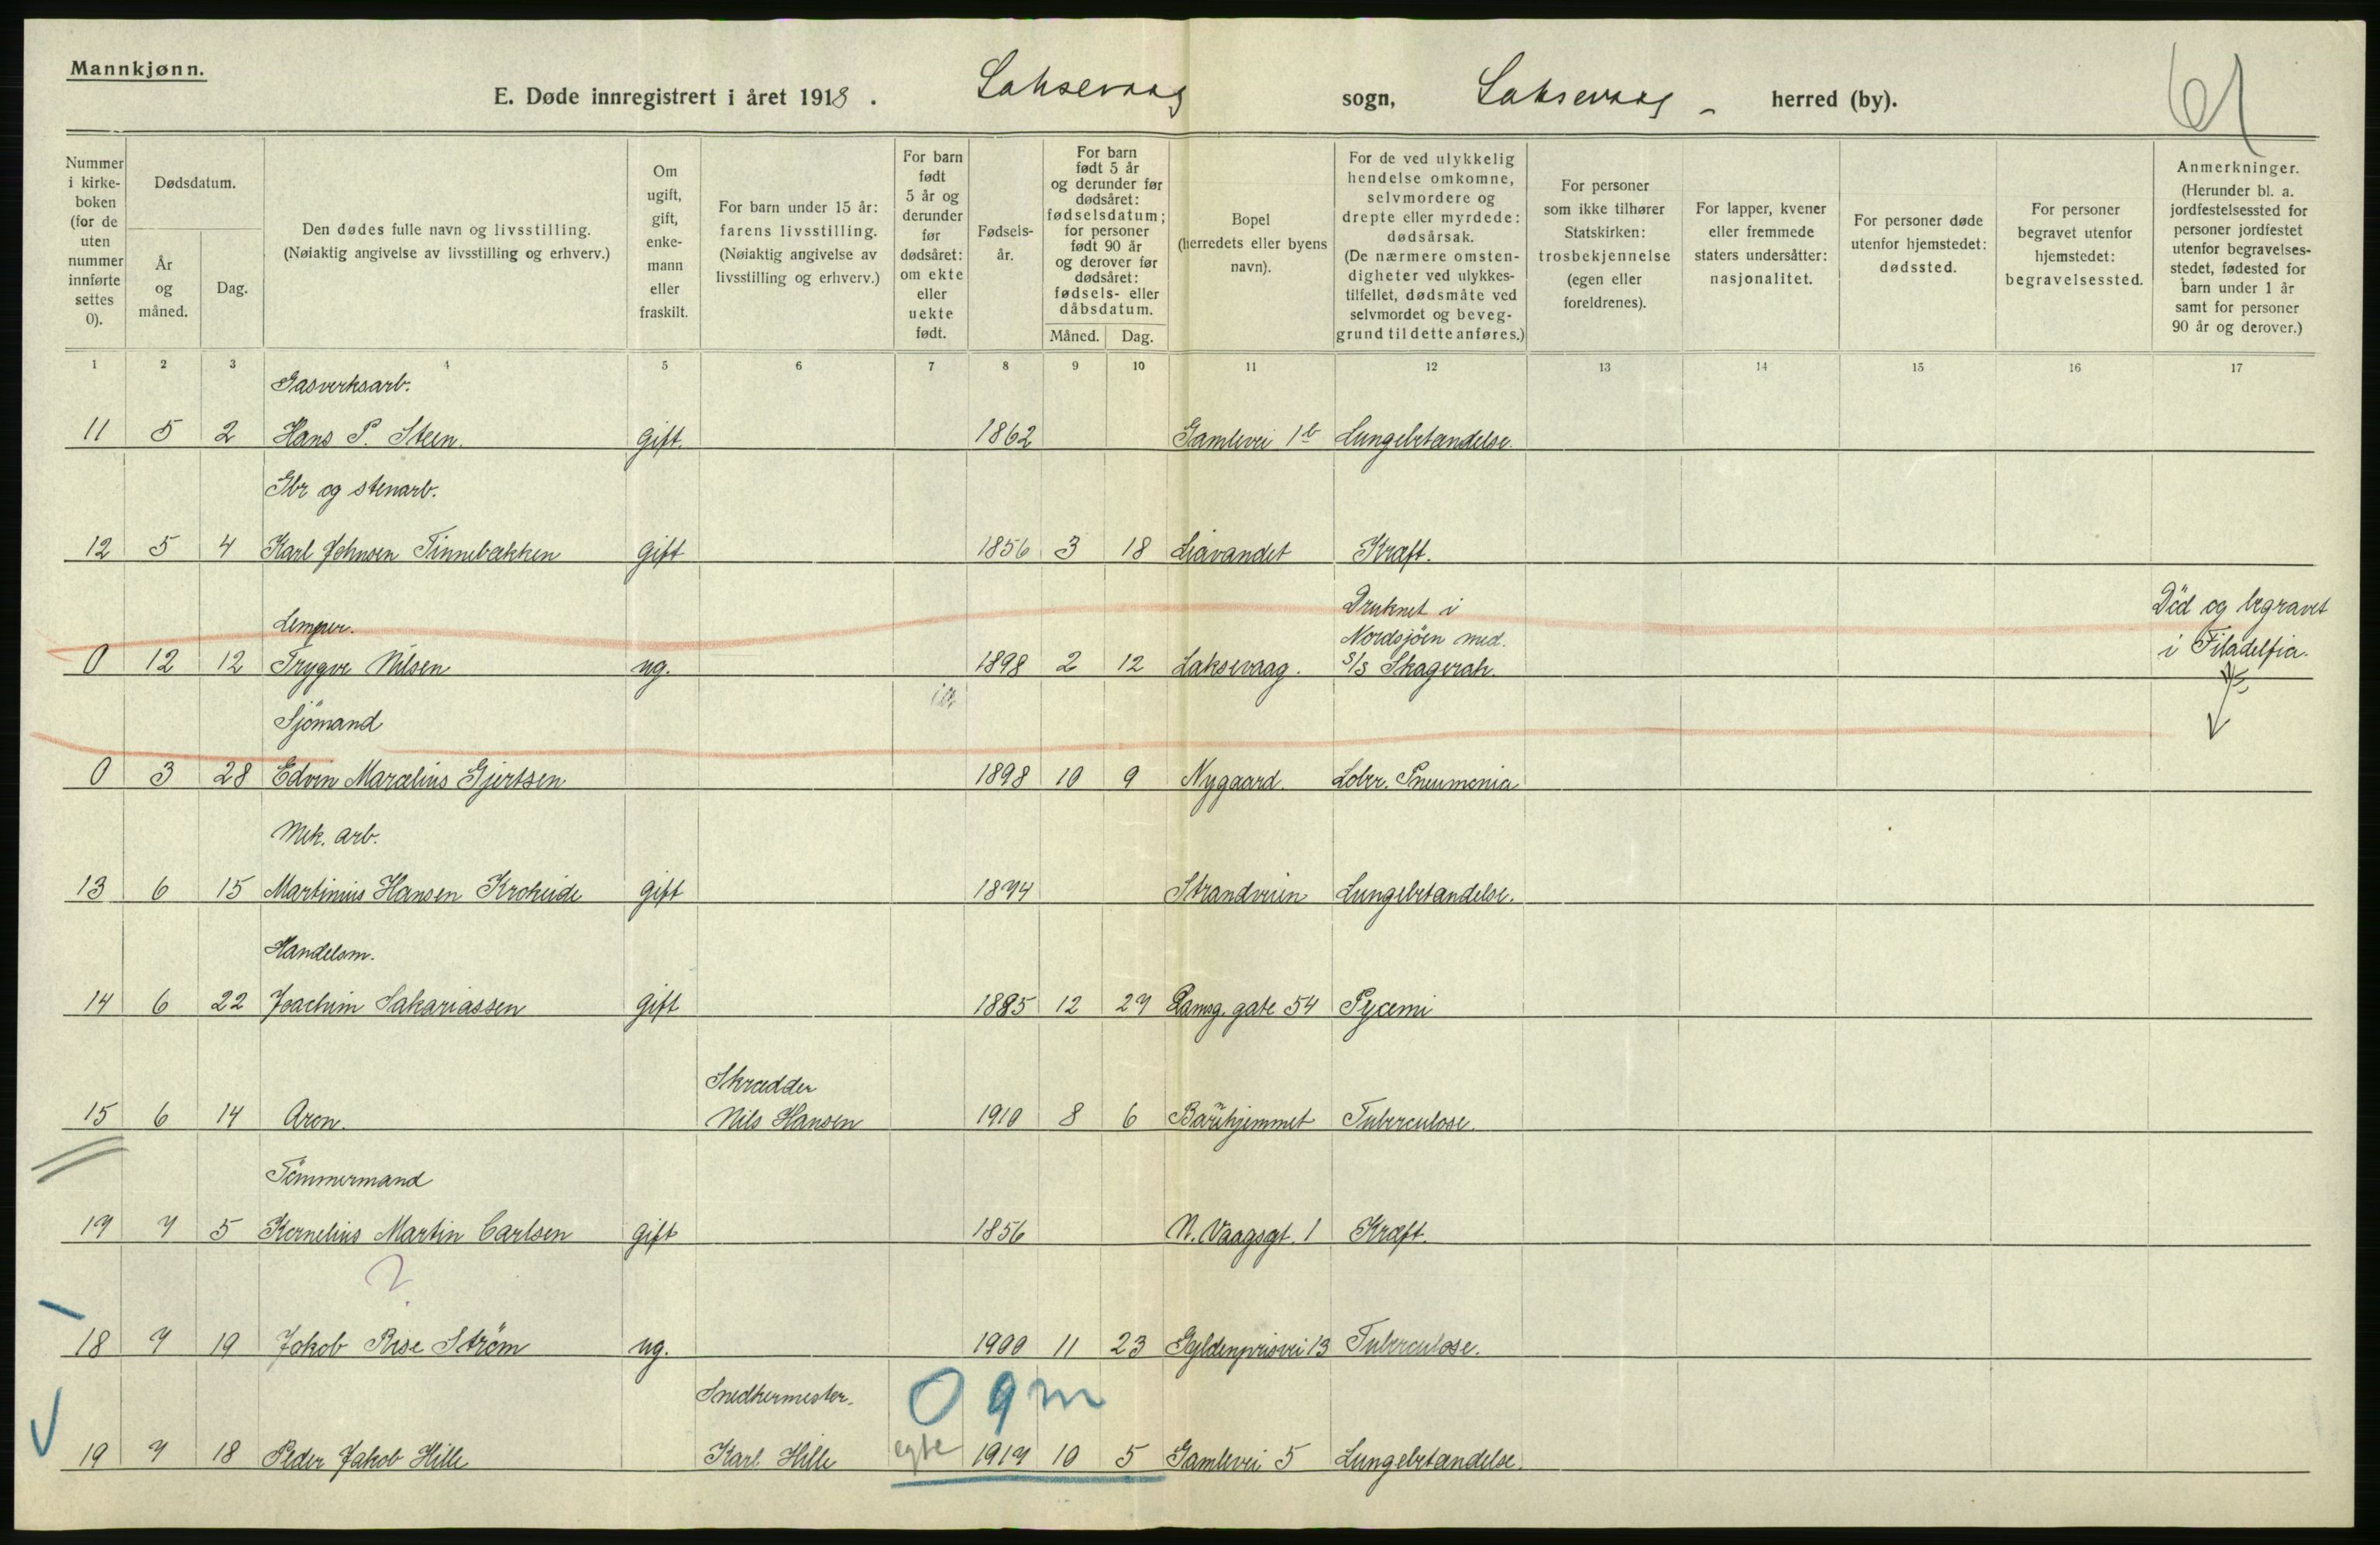 Mannkjønn.
E. Døde innregistrert i året 1918. Laksevaag sogn, Laksevaag herred (by).
61
Nummer i kirke-boken (for de uten nummer innførte settes 0).
Dødsdatum.
År og måned.
Dag.
Den dødes fulle navn og livsstilling. (Nøiaktig angivelse av livsstilling og erhverv.)
Om ugift, gift, enke-mann eller fraskilt.
For barn under 15 år: farens livsstilling. (Nøiaktig angivelse av livsstilling og erhverv.)
For barn født 5 år og derunder før dødsåret: om ekte eller uekte født.
Fødsels-år.
For barn født 5 år og derunder før dødsåret: fødselsdatum; for personer født 90 år og derover før dødsåret: fødsels- eller dåbsdatum.
Måned. Dag.
Bopel (herredets eller byens navn).
For de ved ulykkelig hendelse omkomne, selvmordere og drepte eller myrdede: dødsårsak. (De nærmere omsten-digheter ved ulykkes-tilfellet, dødsmåte ved selvmordet og beveg-grund til dette anføres.)
For personer som ikke tilhører Statskirken: trosbekjennelse (egen eller foreldrenes).
For lapper, kvener eller fremmede staters undersåtter: nasjonalitet.
For personer døde utenfor hjemstedet: dødssted.
For personer begravet utenfor hjemstedet: begravelsessted.
Anmerkninger. (Herunder bl. a. jordfestelsessted for personer jordfestet utenfor begravelses-stedet, fødested for barn under 1 år samt for personer 90 år og derover.)
1 2 3 4 5 6 7 8 9 10 11 12 13 14 15 16 17
Gasverksarb.
11 5 2 Hans P. Steen. gift. 1862 Gamlevei 1b Lungebetændelse.
Gbr og stenarb.
12 5 4 Karl Johnsen Tinnebækken gift 1856 3 18 Liavandet Kræft.
Lemper. Druknet i Nordsjöen med.
0 12 12 Trygve Nilsen ug. 1898 2 12 Laksevaag. S/S Skagerak.
Död og begravet
i Filadelfia.
Sjömand
0 3 28 Edvin Marcelius Gjertsen 1898 10 9 Nygaard. Lober. Pneumonia
Mek. arb.
13 6 15 Martinius Hansen Krokeide gift 1874 Strandveien Lungebetændelse.
Handelsm.
14 6 22 Joachim Sakariassen gift 1885 12 27 Damsg. gate 54 Pyæmi
Skrædder
15 6 14 Aron. Nils Hansen 1910 8 6 Barnehjemmet Tuberculose.
Tömmermand
17 7 5 Kornelius Martin Carlsen gift 1856 N. Vaagsgt. 1 Kræft.
?
18 7 19 Jakob Rise Ström ug. 1900 11 23 Gyldenprisvei 13 Tuberculose.
Snedkermester. 0 9 m
19 7 18 Peder Jakob Hille Karl Hille egte 1917 10 5 Gamlevei 5 Lungebetændelse.